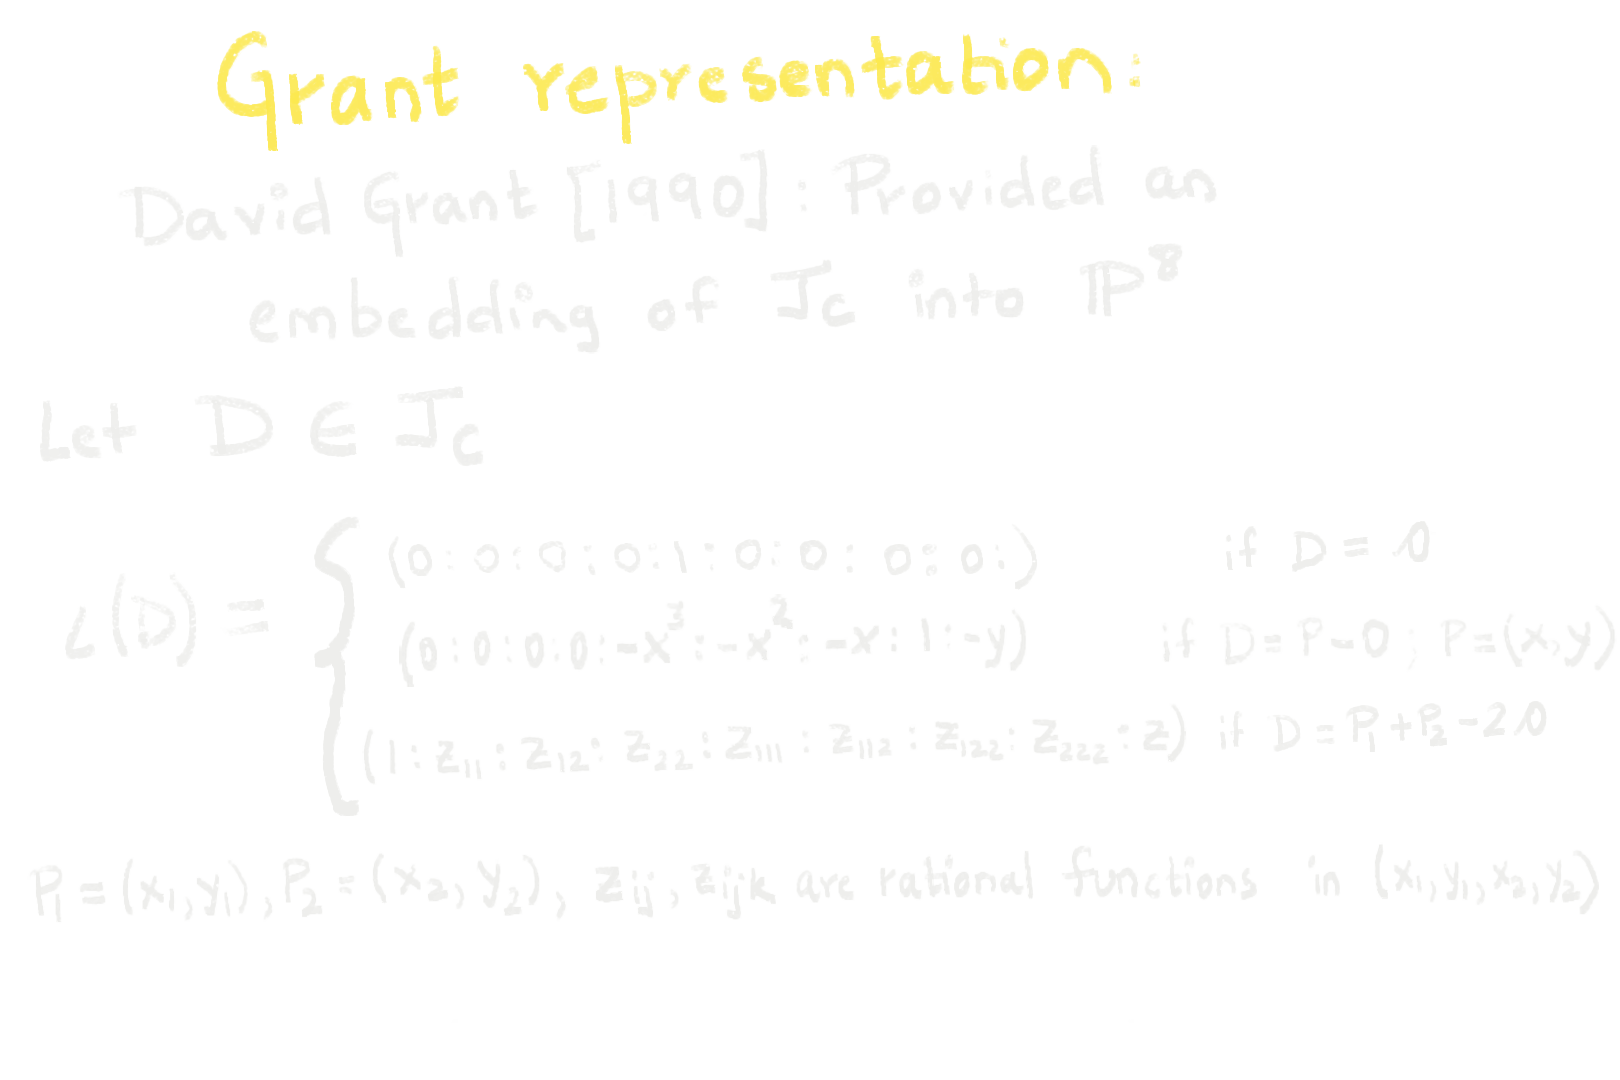 Grant representation:
David Grant [1990]: Provided an
embedding of J_C into ℙ^8
Let D ∈ J_C
L(D) = {
(0:0:0:0:1:0:0:0:0:) if D = 0
(0:0:0:0:-x^3:-x^2:-x:1:-y) if D=P-0; P=(x,y)
(1:z_11:z_12:z_22:z_111:z_112:z_122:z_222:z) if D=P_1+P_2-20
P_1=(x_1,y_1), P_2=(x_2,y_2), z_ij, z_ijk are rational functions in (x_1,y_1,x_2,y_2)